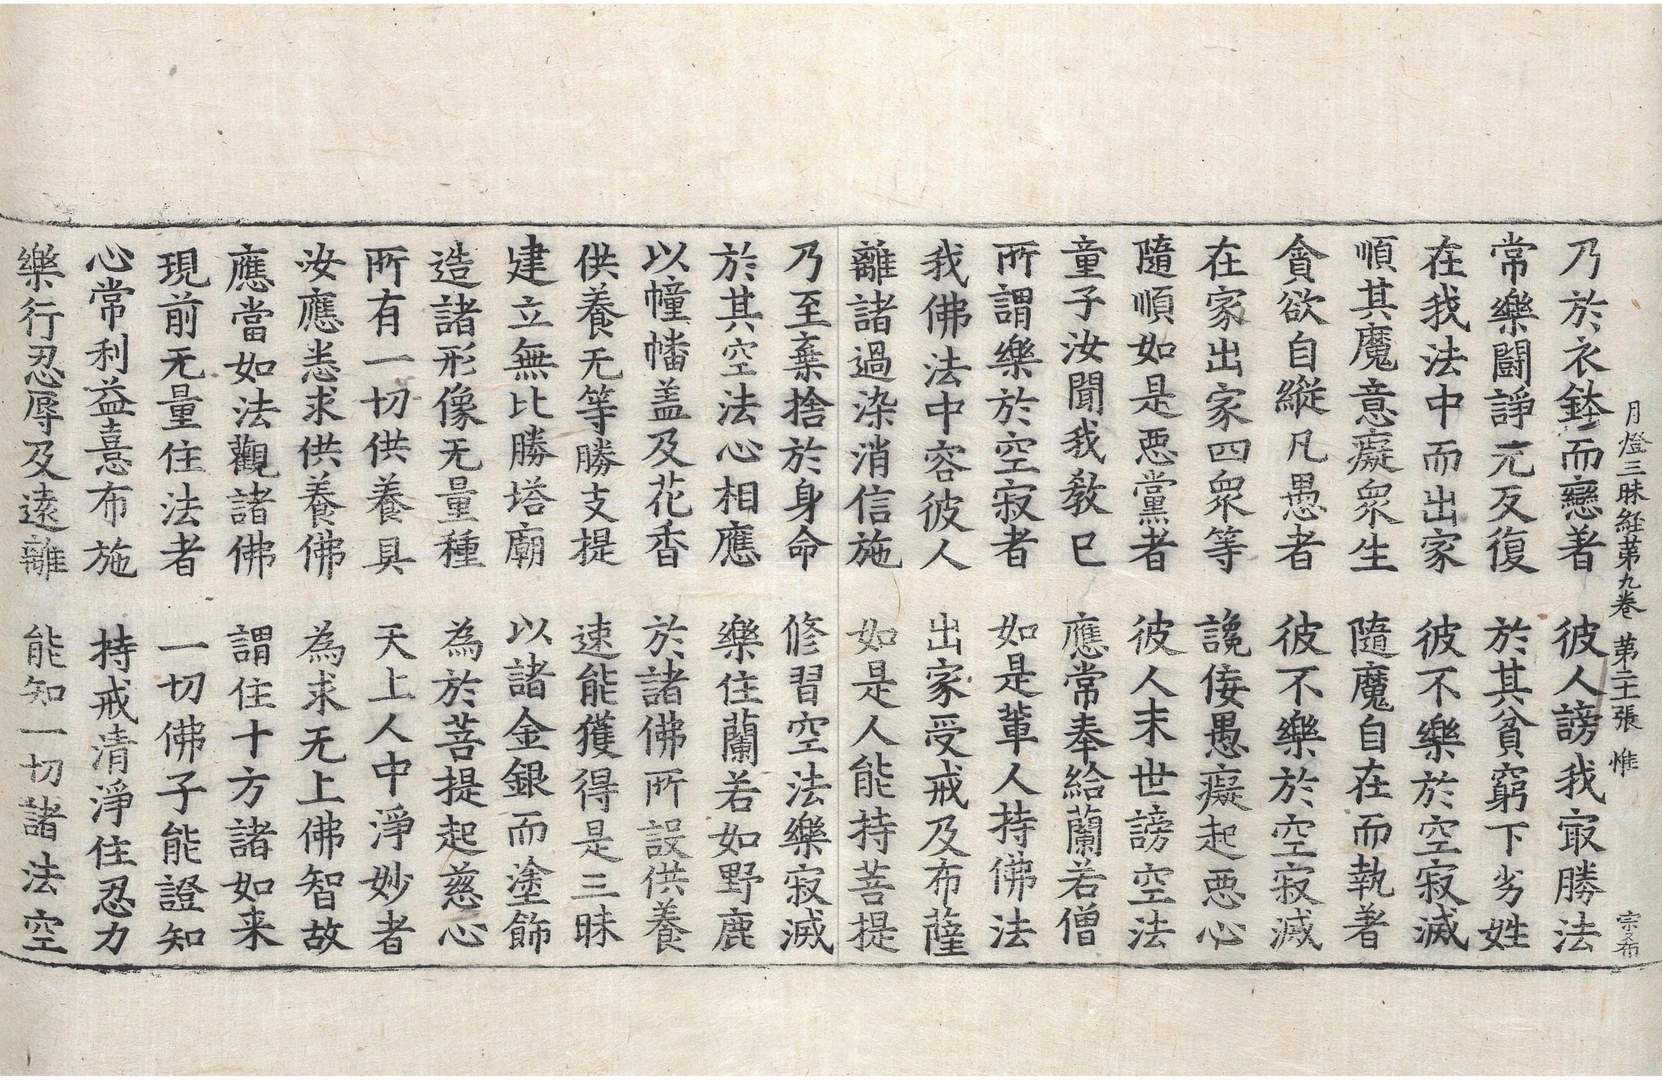 月燈三昧経苐九卷 苐二十張 惟 宗布
乃於衣鉢而戀著 彼人謗我㝡勝法
常樂鬪諍无反復 於其貧窮下劣姓
在我法中而出家 彼不樂於空寂滅
順其魔意癡衆生 隨魔自在而執著
貪欲自縱凡愚者 彼不樂於空寂滅
在家出家四衆等 讒佞愚癡起惡心
隨順如是惡黨者 彼人末世謗空法
童子汝聞我敎已 應常奉給蘭若僧
所謂樂於空寂者 如是輩人持佛法
我佛法中容彼人 出家受戒及布薩
離諸過染消信施 如是人能持菩提
乃至棄捨於身命 修習空法樂寂滅
於其空法心相應 樂住蘭若如野鹿
以幢幡盖及花香 於諸佛所設供養
供養无等勝支提 速能獲得是三昧
建立無比勝塔廟 以諸金銀而塗飾
造諸形像无量種 為於菩提起慈心
所有一切供養具 天上人中淨妙者
汝應悉求供養佛 為求无上佛智故
應當如法觀諸佛 謂住十方諸如来
現前无量住法者 一切佛子能證知
心常利益憙布施 持戒清淨住忍力
樂行忍辱及遠離 能知一切諸法空